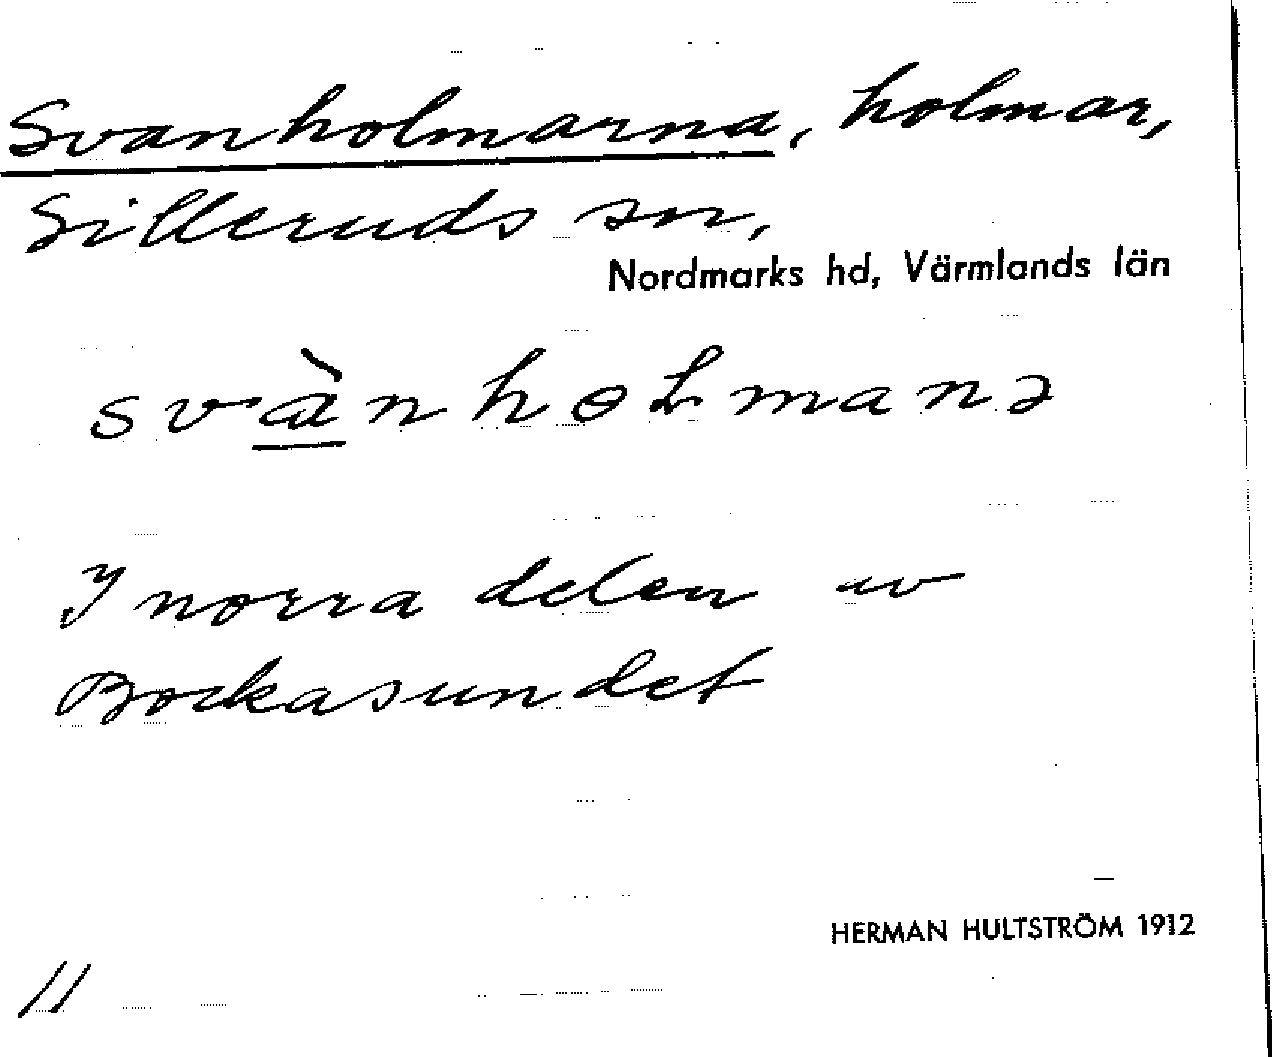 Svanholmarna, holmar,
Silleruds sn,
Nordmarks hd, Värmlands län
svànhɵɫmanə
I norra delen av
Bockasundet
HERMAN HULTSTRÖM 1912
11